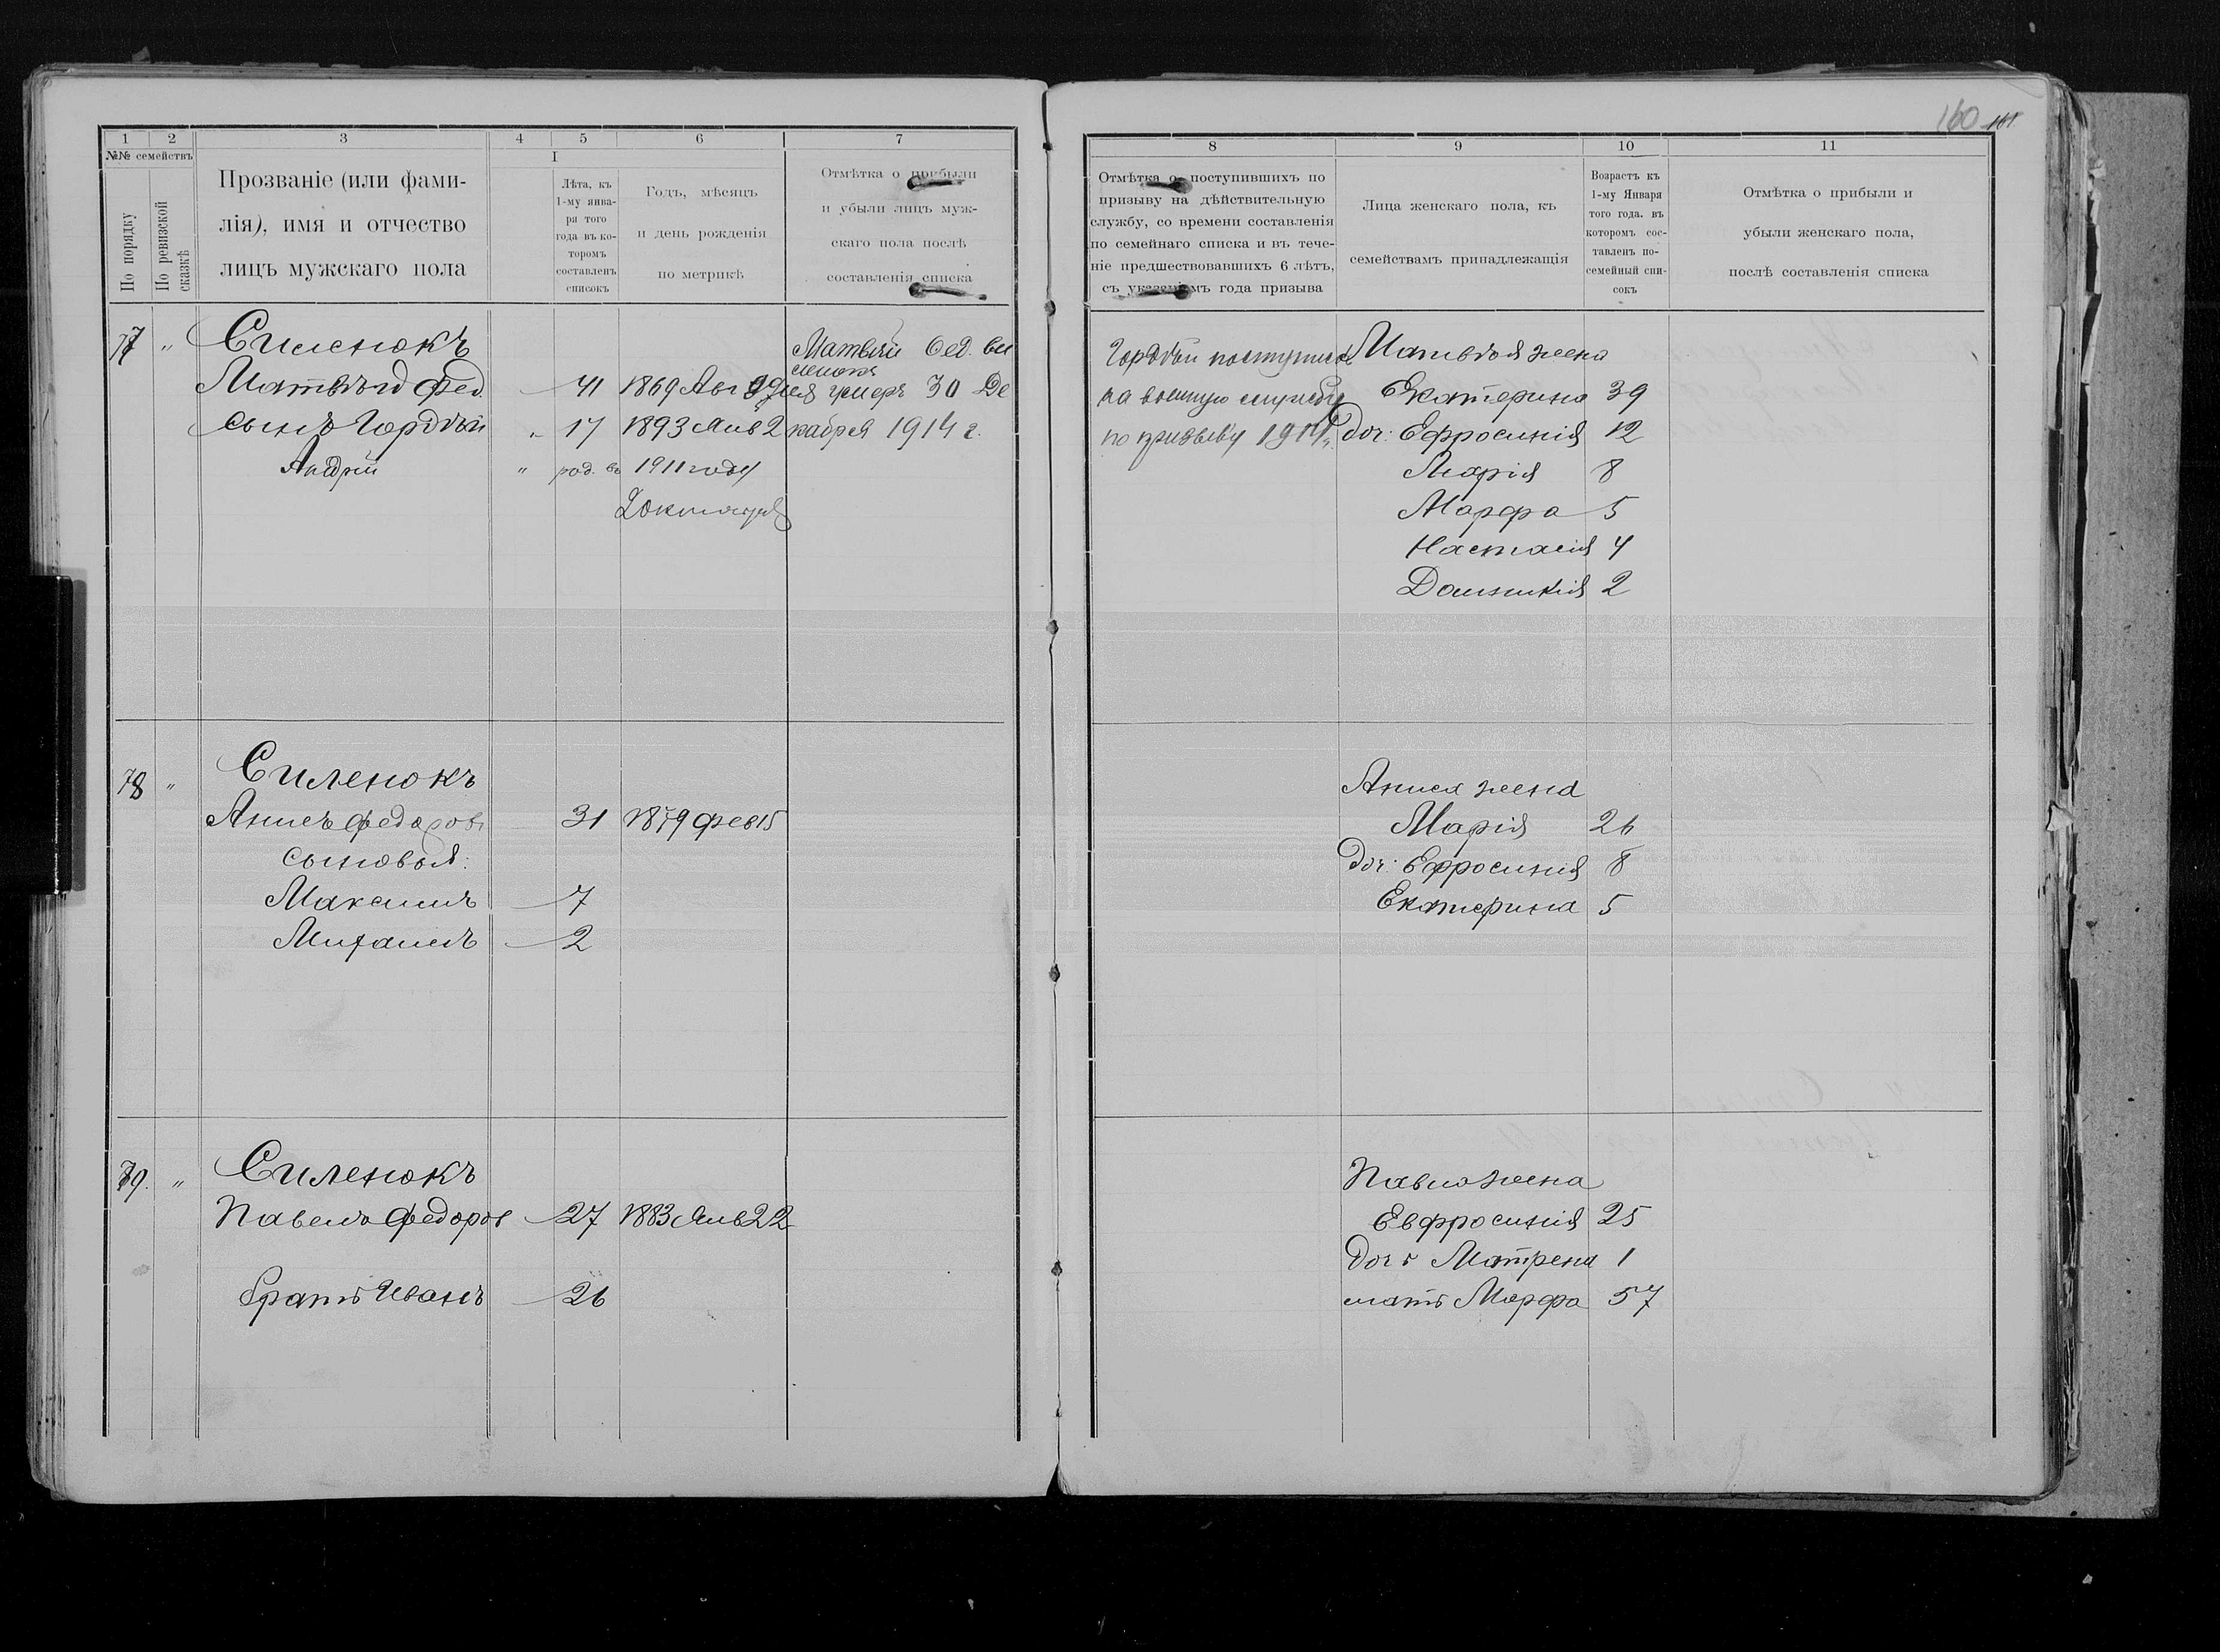 160 161
1 2 3 4 5 6 7
№№ семействъ
По порядку
По ревизской сказкѣ
Прозваніе (или фами-
лія), имя и отчество
лицъ мужскаго пола
I
Лѣта, къ
1-му янва-
ря того
года въ ко-
торомъ
составленъ
списокъ
Годъ, мѣсяцъ
и день рожденія
по метрикѣ
Отмѣтка о прибыли
и убыли лицъ муж-
скаго пола послѣ
составленія списка
77 " Силенокъ
Матвѣй Фед. 41 1869 Авг
сынъ Гордѣй " 17 1893 Янв 2
Андрій " род. въ 1911 году
2 Октября
Матвѣй Фед. Си
ленокъ
умеръ 30 Де
кабря 1914 г.
78 " Силенокъ
Анисъ Федоровъ 31 1879 Фев 15
сыновья:
Максимъ 7
Михаилъ 2
79. " Силенокъ
Павелъ Федоров 27 1883 Янв 22
братъ Иванъ 26
8 9 10 11
Отмѣтка о поступившихъ по
призыву на дѣйствительную
службу, со времени составленія
по семейнаго списка и въ тече-
ніе предшествовавшихъ 6 лѣтъ,
съ указаніемъ года призыва
Лица женскаго пола, къ
семействамъ принадлежащія
Возрастъ къ
1-му Января
того года. въ
которомъ сос-
тавленъ по-
семейный спи-
сокъ
Отмѣтка о прибыли и
убыли женскаго пола,
послѣ составленія списка
Гордѣй поступилъ
на военную службу
по призыву 1914 г.
Матвѣя жена
Екатерина 39
доч: Ефросинія 12
Марія 8
Марфа 5
Настасія 4
Домникія 2
Аниса жена
Марія 26
доч: Ефросинія 8
Екатерина 5
Павла жена
Евфросинія 25
дочь Матрена 1
мать Марфа 57